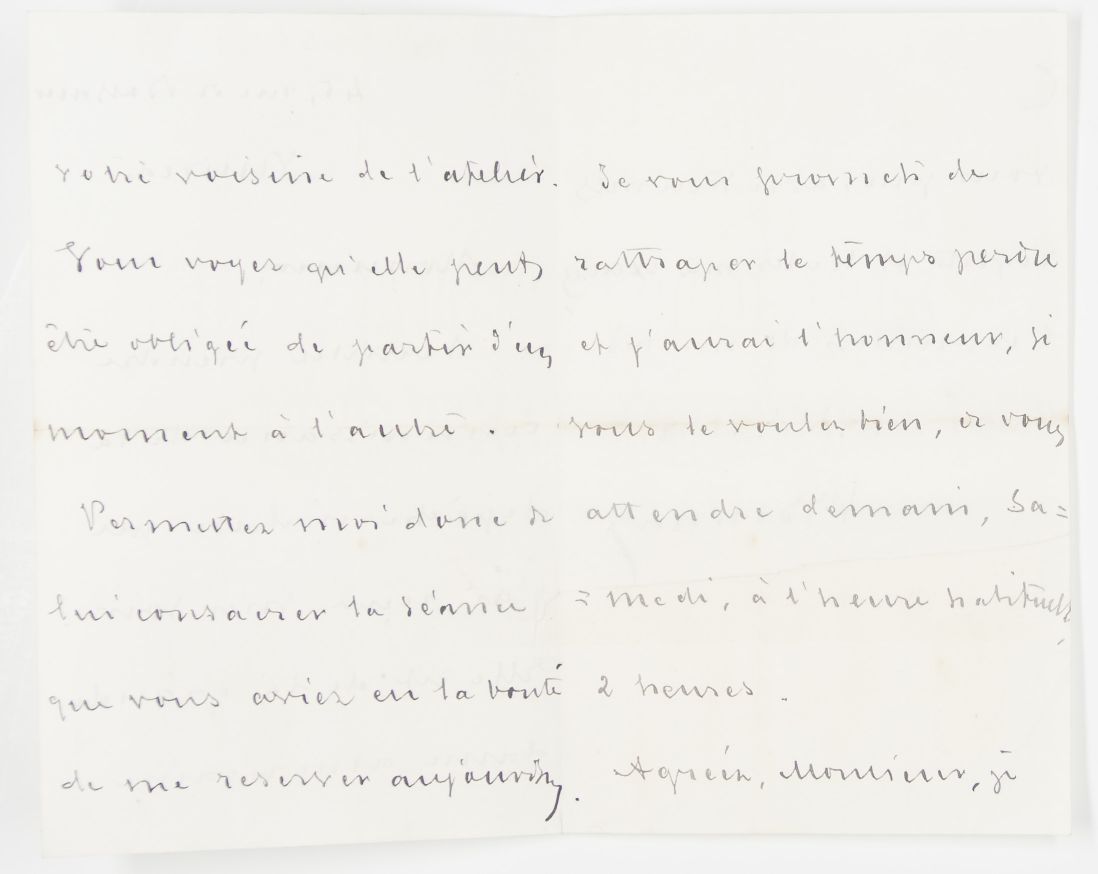 votre voisine de l'atelier.
Vous voyez qu'elle peut
être obligée de partir d'un
moment à l'autre.
Permettez moi donc de
lui consacrer la séance
que vous aviez eu la bonté
de me reserver aujourd'hui.
Je vous promets de
rattraper le temps perdu
et j'aurai l'honneur, si
vous le voulez bien, de vous
attendre demain, Sa=
=medi, à l'heure habituelle,
2 heures.
Agréez, Monsieur, je